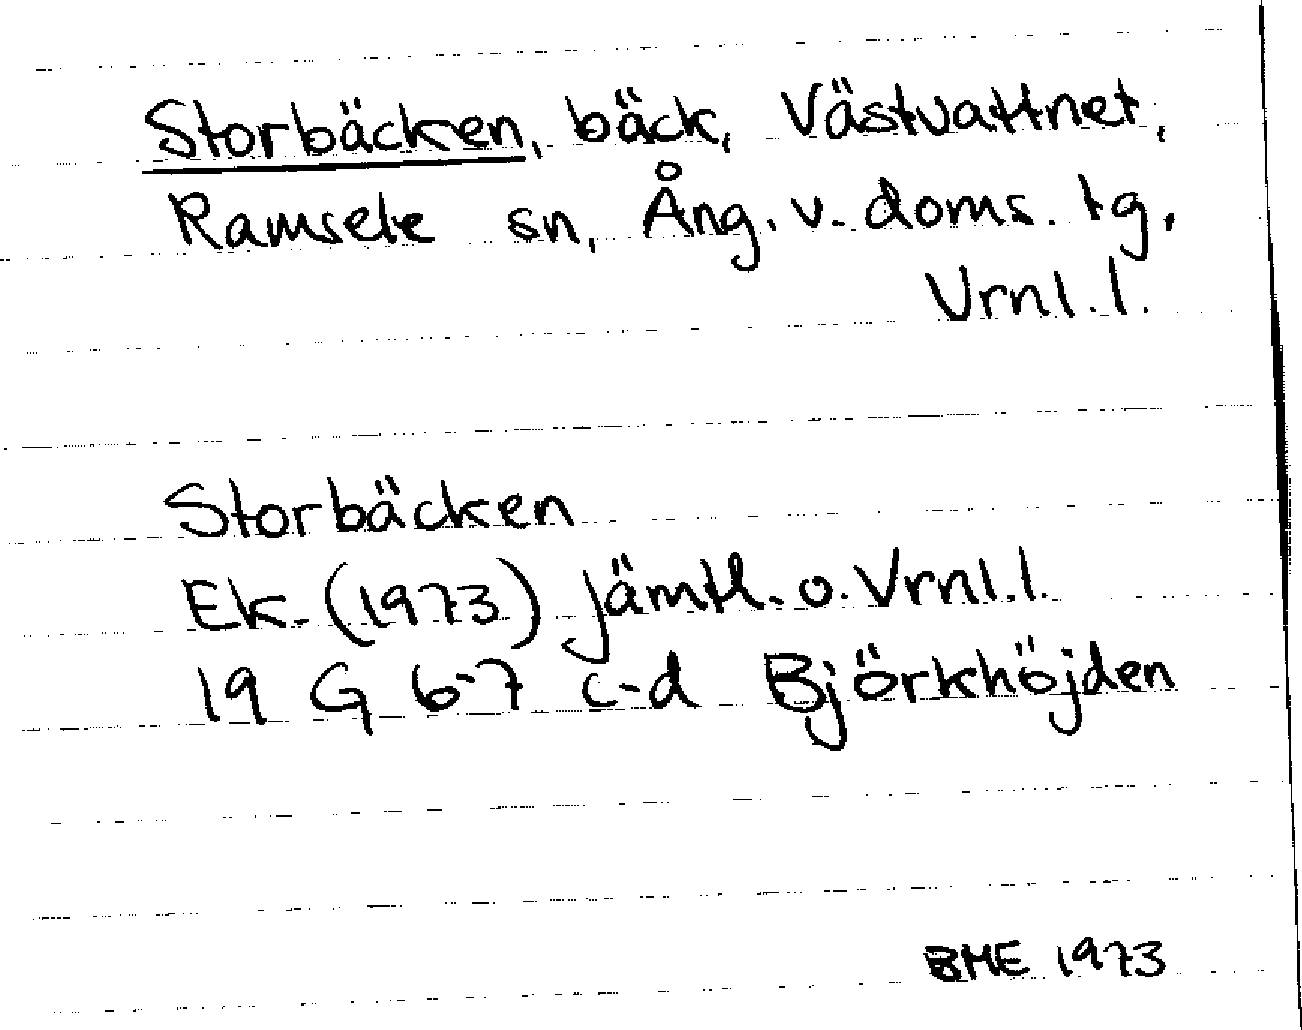 Storbäcken, bäck, Västvattnet,
Ramsele sn, Ång. v. doms. tg,
Vrnl. l.
Storbäcken
Ek. (1973) Jämtl. o. Vrnl. l.
19 G 6-7 c-d Björkhöjden
BME 1973